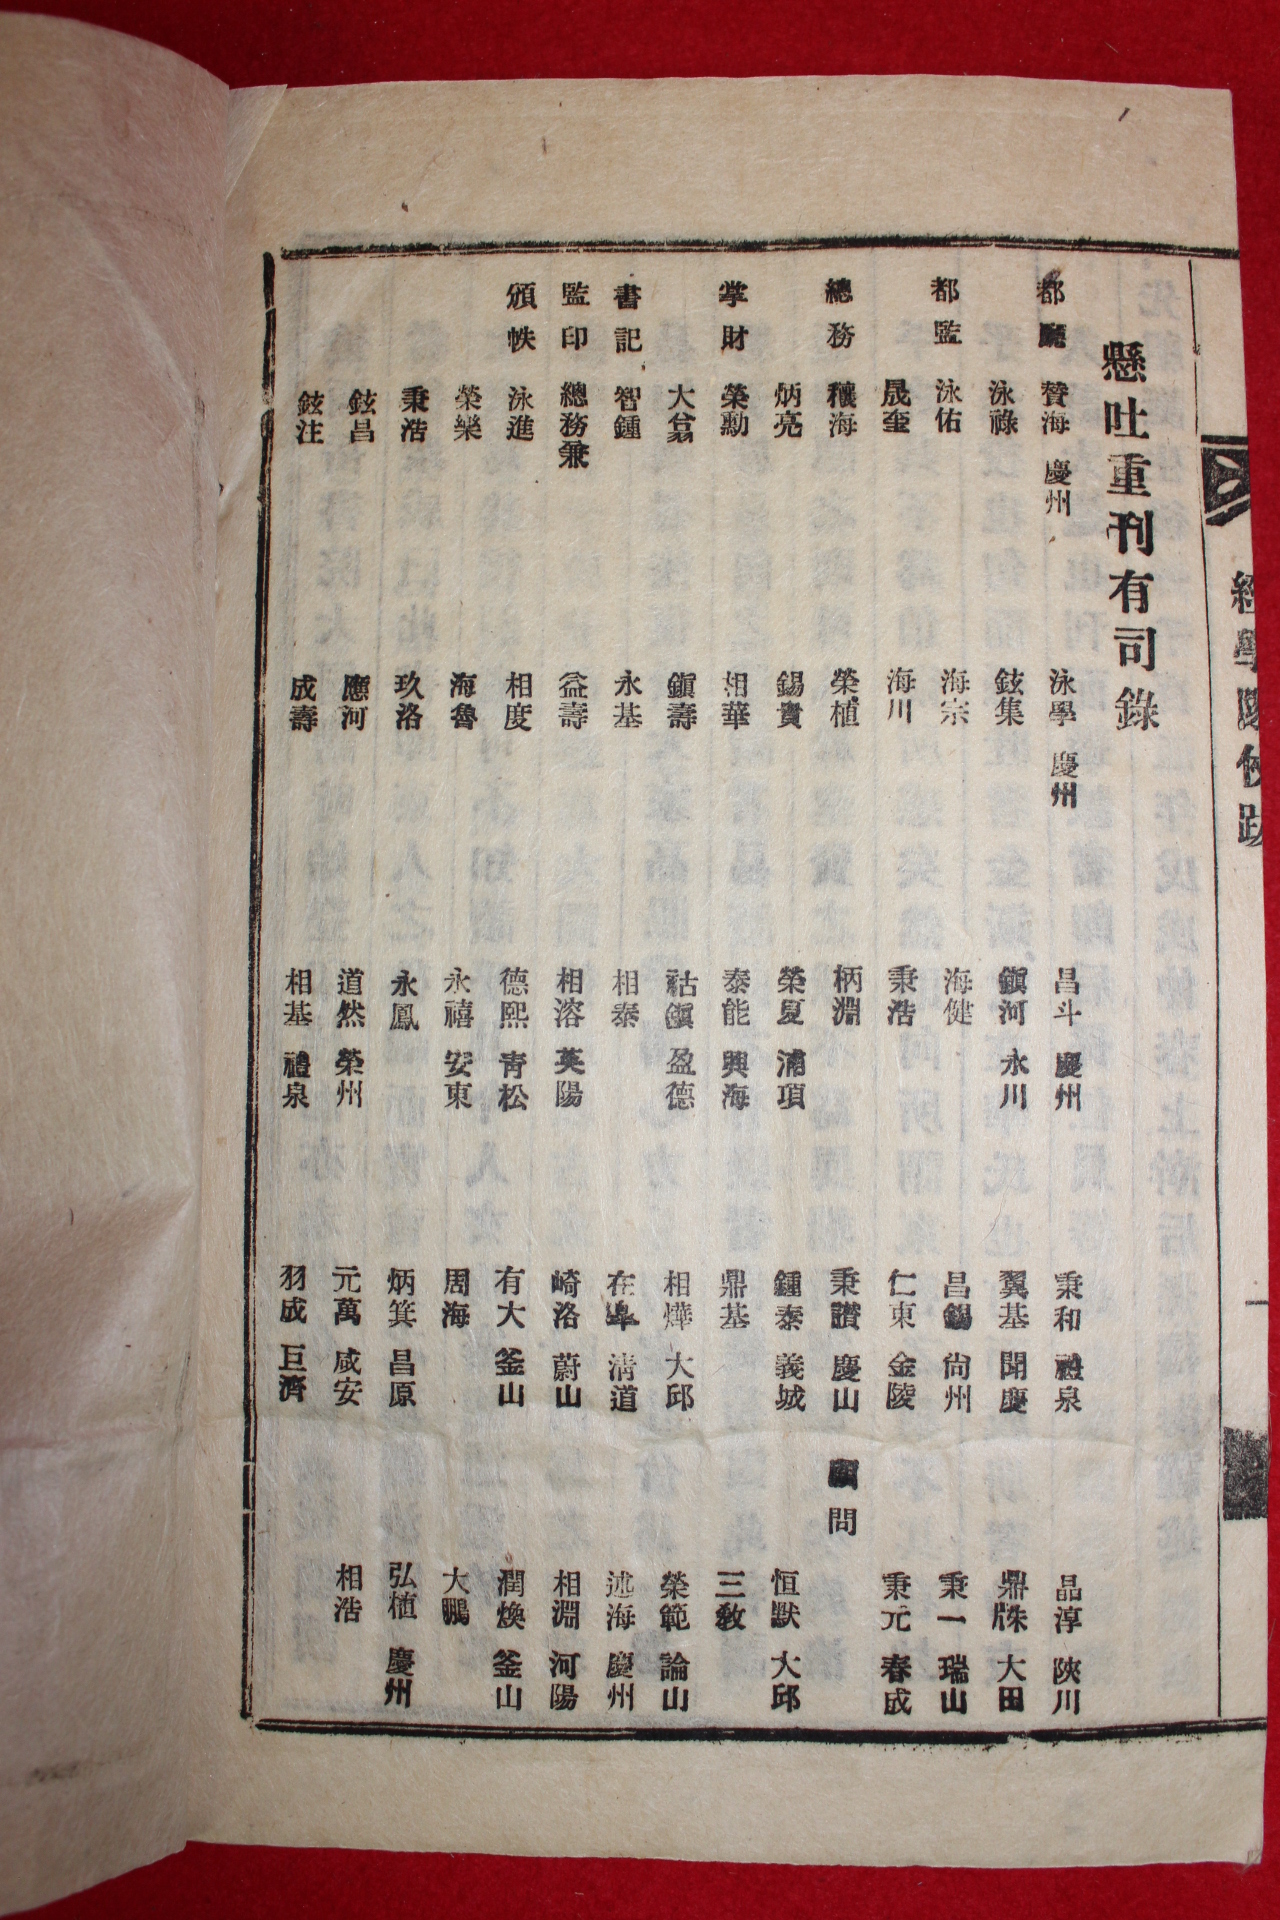 懸吐重刊有司錄
都廳 贊海 慶州 泳學 慶州 昌斗 慶州 秉和 禮泉 晶淳 陜川
泳祿 鉉集 鎭河 永川 翼基 聞慶 鼎洙 大田
都監 泳佑 海宗 海健 昌錫 尙州 秉一 瑞山
晟奎 海川 秉浩 仁東 金陵 秉元 春成
總務 穰海 榮植 柄淵 秉讃 慶山 顧問
炳亮 錫賚 榮夏 浦項 鍾泰 義城 恒默 大邱
掌財 榮勳 相華 泰能 興海 鼎基 三敎
大翁 鎭壽 祜鎭 盈德 相燁 大邱 榮範 論山
書記 智鍾 永基 相泰 在 淸道 述海 慶州
監印 總務兼 益壽 相溶 英陽 崎洛 蔚山 相淵 河陽
頒帙 泳進 相度 德熙 靑松 有大 釜山 潤煥 釜山
榮樂 海魯 永禧 安東 周海 大鵬
秉浩 玖洛 永鳳 炳箕 昌原 弘植 慶州
鉉昌 應河 道然 榮州 元萬 咸安 相浩
鉉注 成壽 相基 禮泉 羽成 巨濟